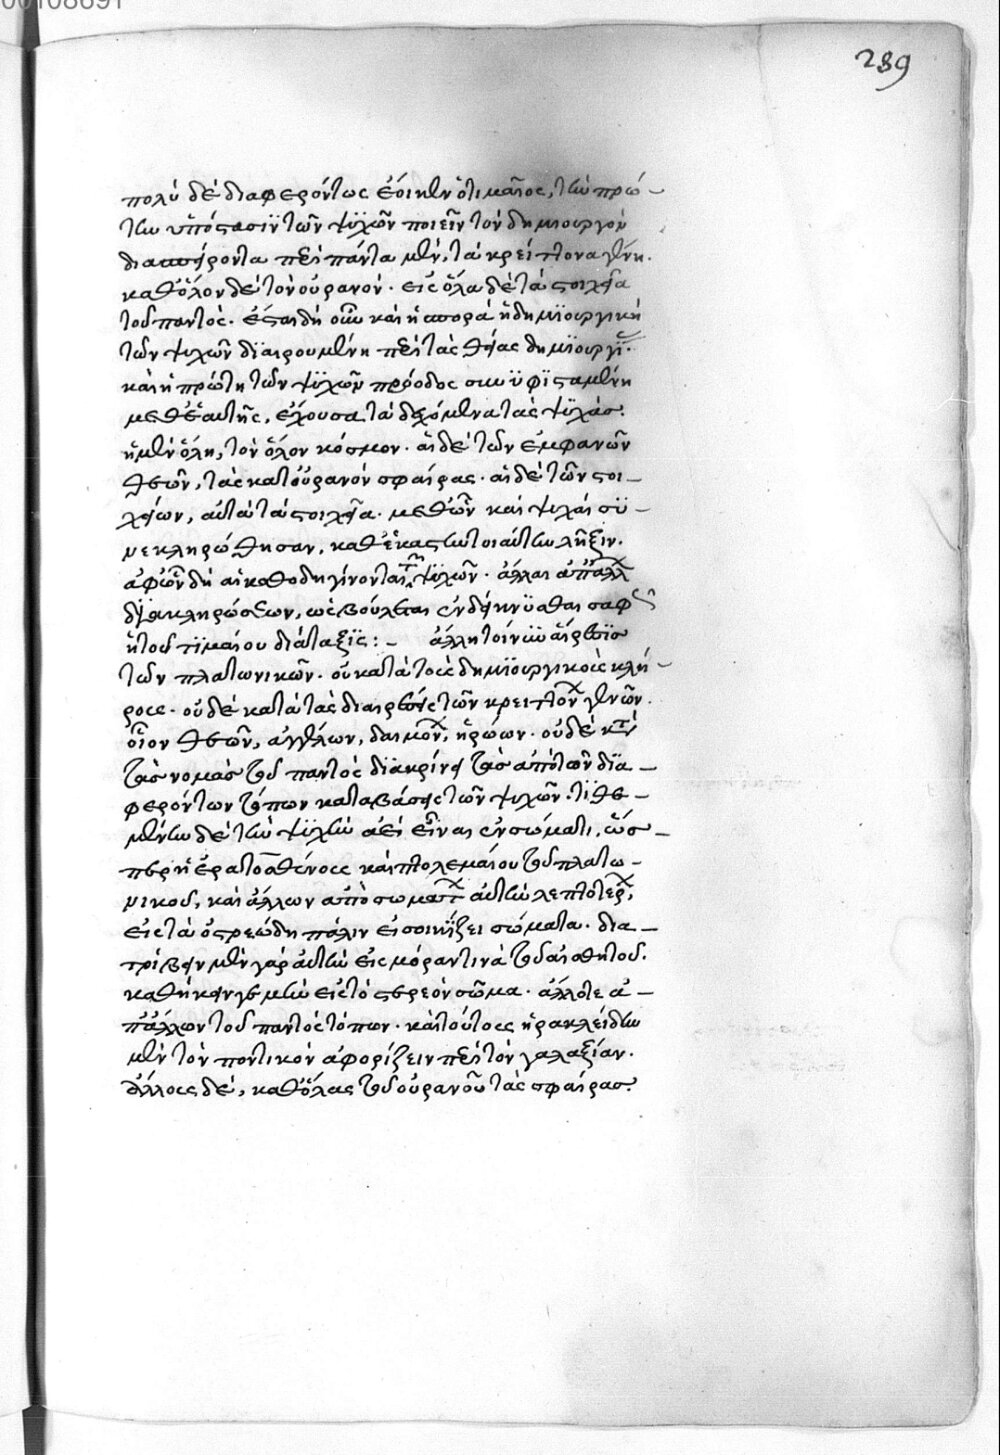 289
πολὺ δὲ διαφερόντως ἔοικεν ὁ τίμαῖος, τὴν πρώ-
την ὑπόστασιν τῶν ψυχῶν ποιεῖν τὸν δημιουργὸν
διασπείροντα περὶ πάντα μὲν, τὰ κρείττονα γένη.
καθ' ὅλον δὲ τὸν οὐρανὸν. εἰς ὅλα δὲ τὰ στοιχεῖα
τοῦ παντὸς. ἔσται δὴ οὖν καὶ ἡ σπορὰ ἡ δημιουργικὴ
τῶν ψυχῶν διαιρουμένη περὶ τὰς θείας δημιουργί.
καὶ ἡ πρώτη τῶν ψυχῶν πρόοδος συνυφισταμένη
μεθ' ἑαυτῆς, ἔχουσα τὰ δεχόμενα τὰς ψυχάς.
ἡ μὲν ὅλη, τὸν ὅλον κόσμον. αἱ δὲ τῶν ἐμφανῶν
θεῶν, τὰς κατ' οὐρανὸν σφαίρας. αἱ δὲ τῶν στοι-
χείων, αὐτὰ τὰ στοιχεῖα. μεθ' ὧν καὶ ψυχαὶ συ-
νεκληρώθησαν, καθ' ἑκάστην τοιαύτην λῆξιν.
ἀφ' ὧν δὴ αἱ κάθοδοι γίνονται τῶν ψυχῶν. ἄλλαι ἀπ' ἄλλ
διακληρώσεων, ὡς βούλεται ἐνδείκνυσθαι σαφῶς
ἡ τοῦ τιμαίου διάταξις :- ἄλλη τοίνυν αἵρεσις
τῶν πλατωνικῶν. οὐ κατὰ τοὺς δημιουργικοὺς κλή-
ρους. οὐδὲ κατὰ τὰς διαιρέσεις τῶν κρειττόν γενῶν.
οἷον θεῶν, ἀγγέλων, δαιμόν, ἡρώων. οὐδὲ κατὰ
τὰς νομὰς τοῦ παντὸς διακρίνει τὰς ἀπὸ τῶν δια-
φερόντων τόπων καταβάσεις τῶν ψυχῶν. τιθε-
μένων δὲ τὴν ψυχὴν ἀεὶ εἶναι ἐν σώματι, ὥσ-
περ ἡ ἐρατοσθένους καὶ πτολεμαίου τοῦ πλατω-
νικοῦ, καὶ ἄλλων ἀπὸ σωμάτ αὐτὴν λεπτοτέρ,
εἰς τὰ ὀστρεώδη πάλιν εἰσοικίζει σώματα. δια-
τρίβειν μὲν γὰρ αὐτὴν εἰς μόραν τινὰ τοῦ αἰσθητοῦ.
καθήκειν γε μὴν εἰς τὸ στερεὸν σῶμα. ἄλλοτε ἀ-
π' ἄλλων τοῦ παντὸς τόπων. καὶ τούτους ἡρακλείδην
μὲν τὸν ποντικὸν ἀφορίζειν περὶ τὸν γαλαξίαν.
ἄλλους δὲ, καθ' ὅλας τοῦ οὐρανοῦ τὰς σφαίρας.